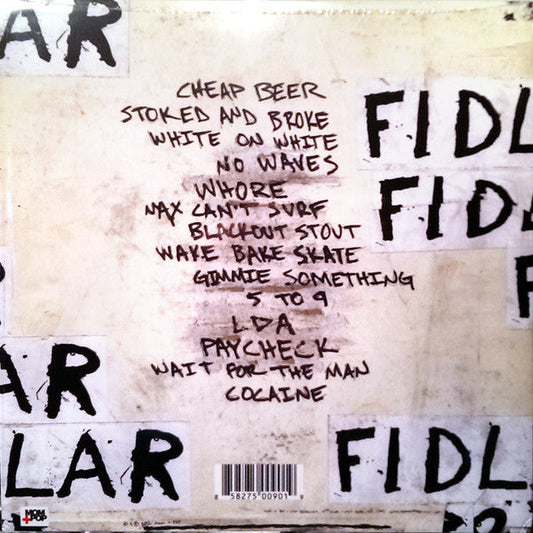 AR
CHEAP BEER
STOKED AND BROKE
FIDL
WHITE ON WHITE
NO WAVES
WHORE
FIDL
MAX CAN'T SURF
BLACKOUT STOUT
WAKE BAKE SKATE
GIMMIE SOMETHING
5 TO 9
LDA
PAYCHECK
WAIT FOR THE MAN
AR
COCAINE
LAR
FIDL
8 58275 00901 9
MOM
+POP